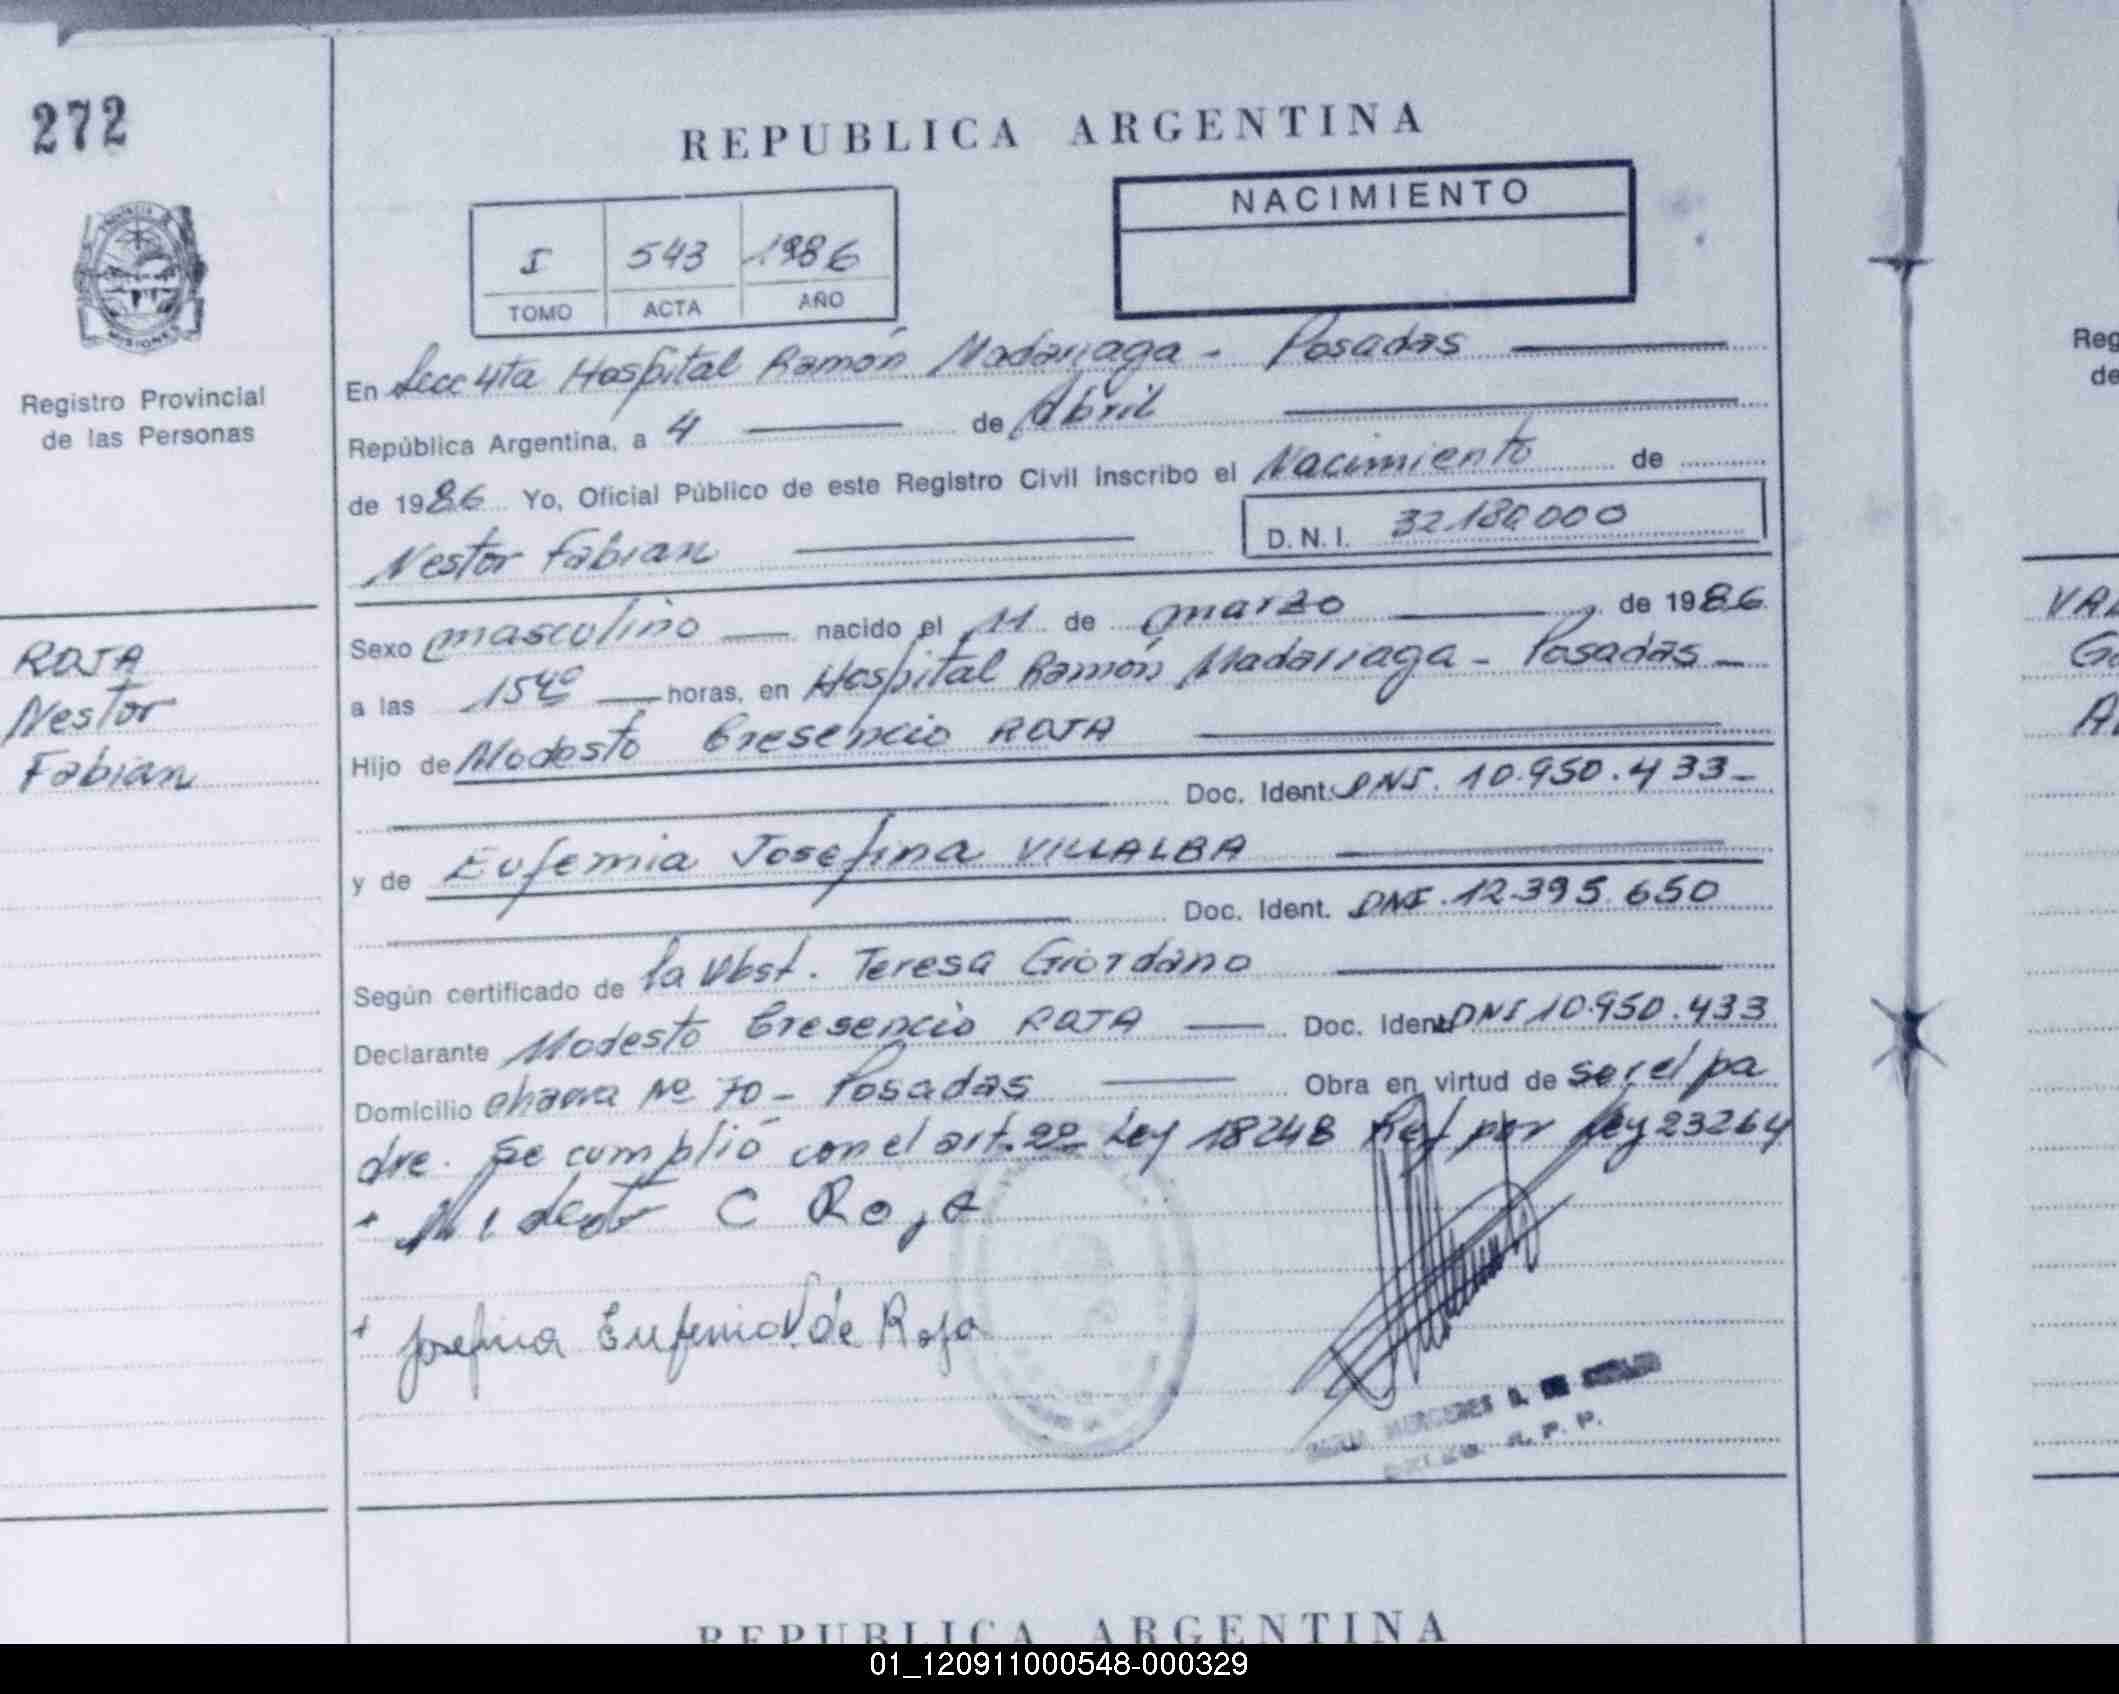 272
REPUBLICA ARGENTINA
NACIMIENTO
I 543 1986
TOMO ACTA AÑO
MISIONES
Registro Provincial
de las Personas
En Secc 4ta Hospital Ramón Madariaga - Posadas
República Argentina, a 4 de Abril
de 1986 Yo, Oficial Público de este Registro Civil Inscribo el Nacimiento de
Nestor Fabian D.N.I. 32.180.000
Sexo masculino nacido el 11 de marzo de 1986
a las 15 40 horas, en Hospital Ramón Madariaga - Posadas -
Hijo de Modesto Cresencio ROJA
Doc. Ident. DNI. 10.950.433-
y de Eufemia Josefina VILLALBA
Doc. Ident. DNI. 12.395.650
Según certificado de la Obst. Teresa Giordano
Declarante Modesto Cresencio ROJA Doc. Ident. DNI 10.950.433
Domicilio chacra Nº 70 - Posadas Obra en virtud de ser el pa
dre. Se cumplió con el art. 2º Ley 18248 Ref por Ley 23264
Modesto C Roja
Josefina Eufemia V. de Roja
MERCEDES
R. P. P.
ROJA
Nestor
Fabian
REPUBLICA ARGENTINA
Reg
de
VAL
G
A
01_120911000548-000329